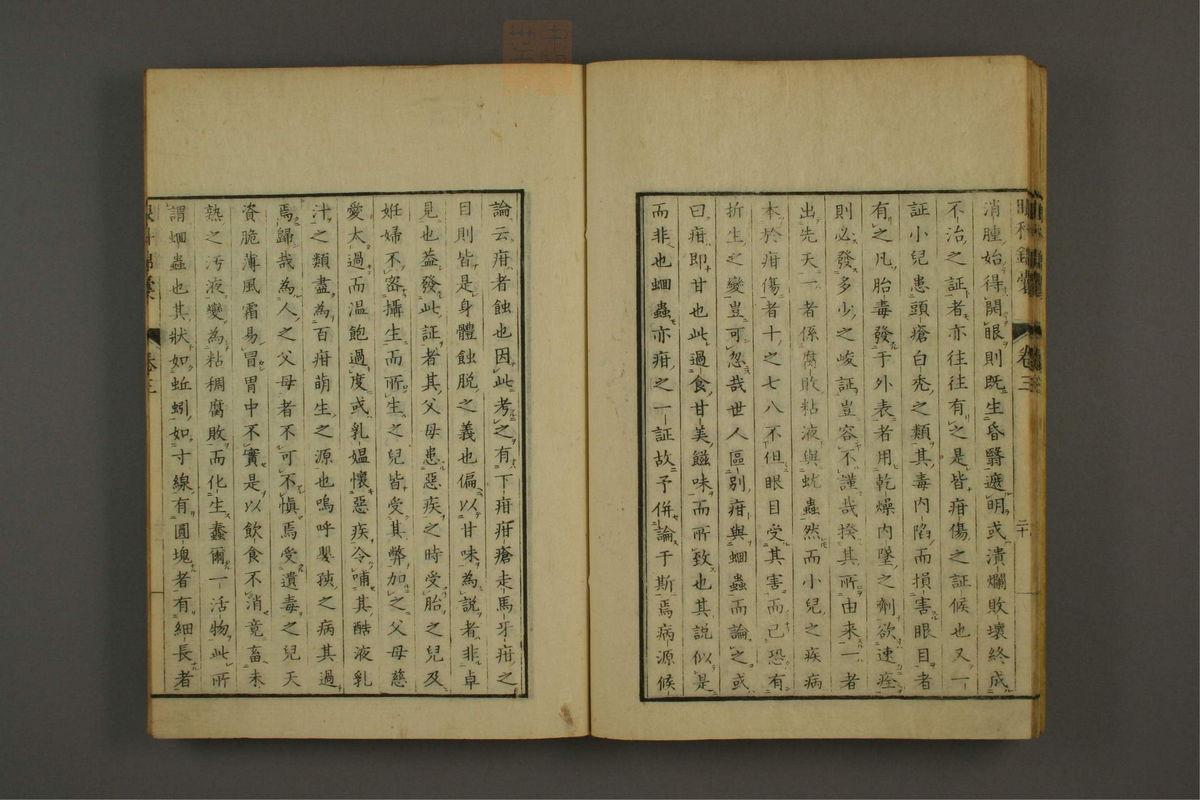 眼科錦囊 卷三 二十
消腫始得開眼則既生昏翳遮明或潰爛敗壞終成
不治之証者亦往往有之是皆疳傷之証候也又一
証小兒患頭瘡白禿之類其毒內陷而損害眼目者
有之凡胎毒發于外表者用乾燥內墜之劑欲速痊
則必發多少之峻証豈容不謹哉揆其所由來一者
出先天一者係腐敗粘液與蚘蟲然而小兒之疾病
本於疳傷者十之七八不但眼目受其害而已恐有
折生之變豈可忽哉世人區別疳與蛔蟲而論之或
曰疳即甘也此過食甘美鎰味而所致也其說似是
而非也蛔蟲亦疳之一証故予併論于斯焉病源候
論云疳者蝕也因此考之有下疳疳瘡走馬牙疳之
目則皆是身體蝕脫之義也偏以甘味為說者非卓
見也益發此証者其父母患惡疾之時受胎之兒及
妊婦不密攝生而所生之兒皆受其弊加之父母慈
愛太過而温飽過度或乳媼懷惡疾令哺其酷液乳
汁之類盡為百疳萌生之源也嗚呼嬰孩之病其過
焉歸哉為人之父母者不可不慎焉受遺毒之兒天
資脆薄風霜易冒胃中不實是以飲食不消竟畜未
熟之汚液變為粘稠腐敗而化生蠢爾一活物此所
謂蛔蟲也其狀如蚯蚓如寸線有圓塊者有細長者
眼科錦囊 卷三